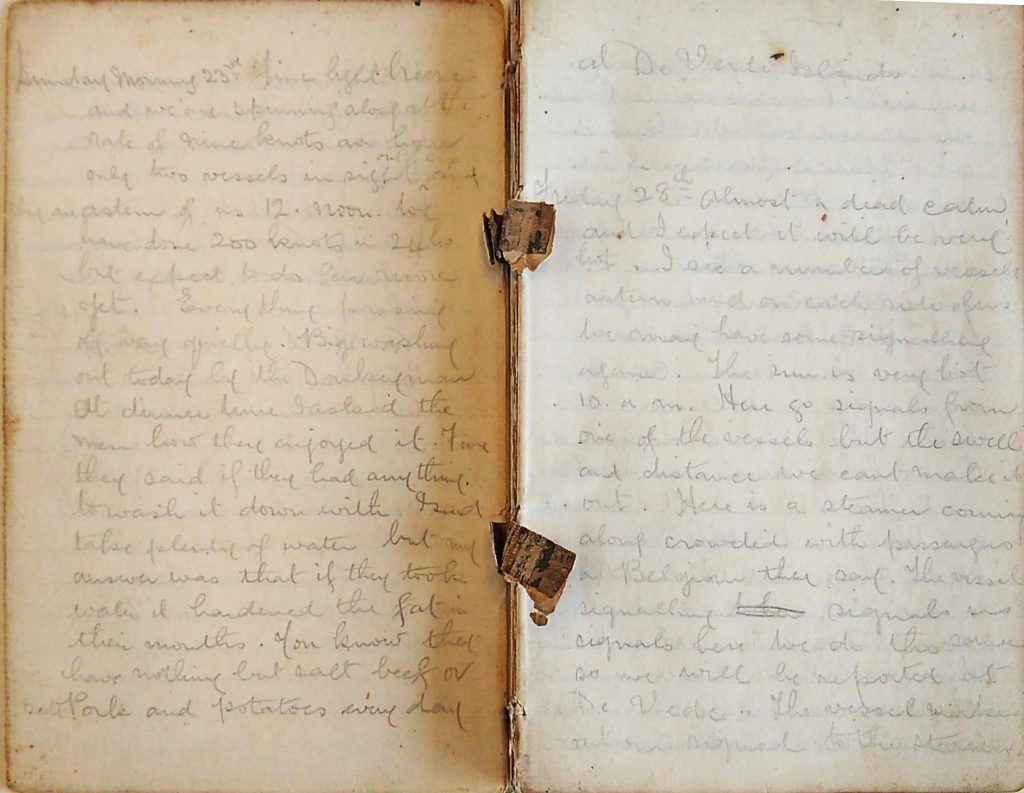 Sunday Morning 23rd Fine light breeze
and we are spinning along at the
rate of nine knots an hour
only two vessels in sight and
out
they are astern of us 12. noon. We
have done 200 knots in 24 ho
but expect to do more
yet. Everything passing
off very quietly. Big washing
out today by the Donkeyman
At dinner time I asked the
men how they enjoyed it. Fine
they said if they had anything
to wash it down with. I said
take plenty of water but my
answer was that if they took
water it hardened the fat in
their mouths. You know they
have nothing but salt beef or
salt Pork and potatoes every day
at De Verde Islands
Friday 28th Almost a dead calm
and I expect it will be very
hot. I see a number of vessels
astern and on each side of us
we may have some signalling
again. The sun is very hot
10. a m. Here go signals from
one of the vessels but the swell
and distance we cant make it
out. Here is a steamer coming
along crowded with passengers
a Belgian they say. The vessel
signalling signals us
signals her we do the same
so we will be reported at
De Vede.. The vessel
out our signal to the steamer